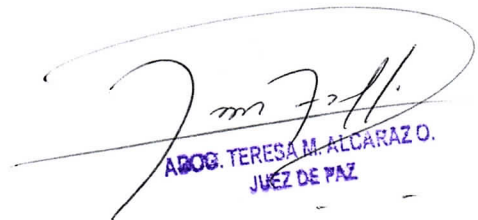 ABOG. TERESA M. ALCARAZ O.
JUEZ DE PAZ